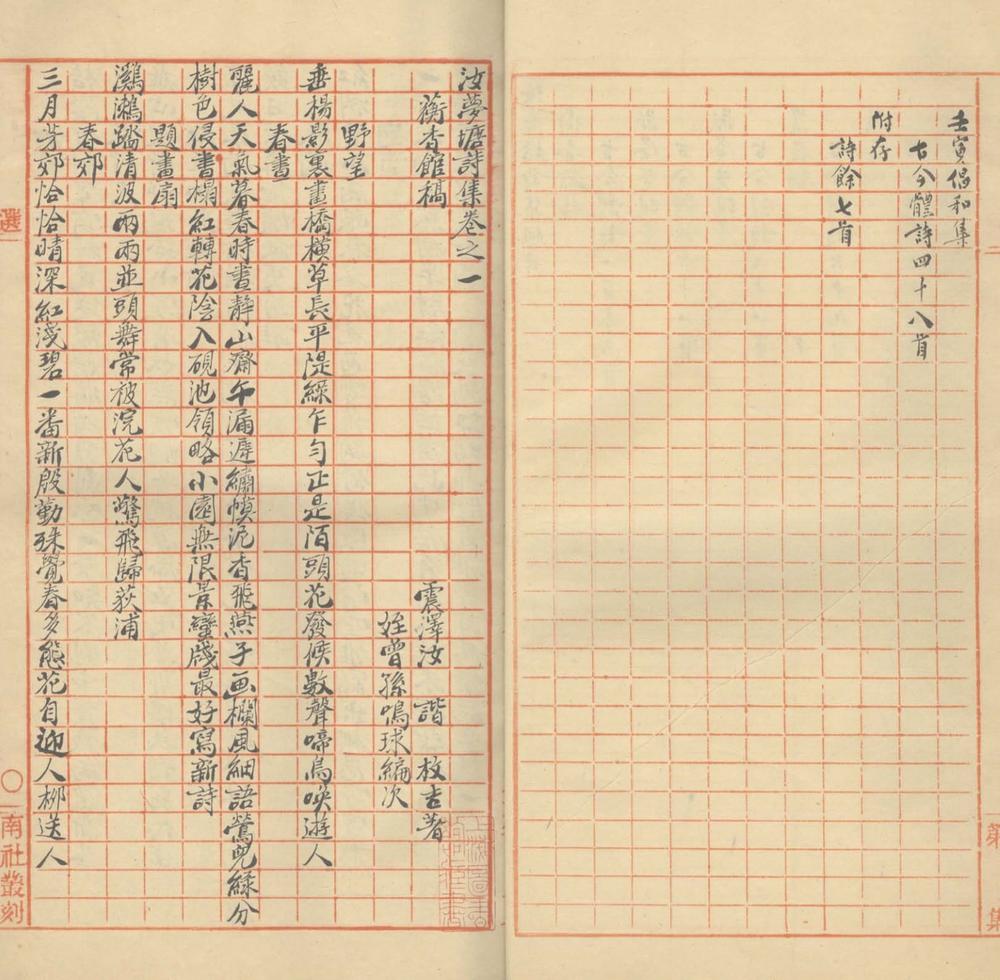 壬寅倡和集
古今體詩四十八首
附存
詩餘七首
第
集
汝夢塘詩集卷之一
蘅香館稿
震澤汝諧枚吉著
姪曾孫鳴球編次
野望
垂楊影裏畫橋橫草長平隄綠乍勻正是陌頭花發候數聲啼鳥喚遊人
春晝
麗人天氣暮春時晝靜山齋午漏遲繡幙泥香飛燕子画欄風細語鶯兒綠分
樹色侵書榻紅轉花陰入硯池領略小園無限景蠻牋最好寫新詩
題畫扇
鸂鶒踏清波兩兩並頭舞常被浣花人驚飛歸荻浦
春郊
三月芳郊恰恰晴深紅淺碧一番新殷勤殊覺春多態花自迎人柳送人
選
南社叢刻